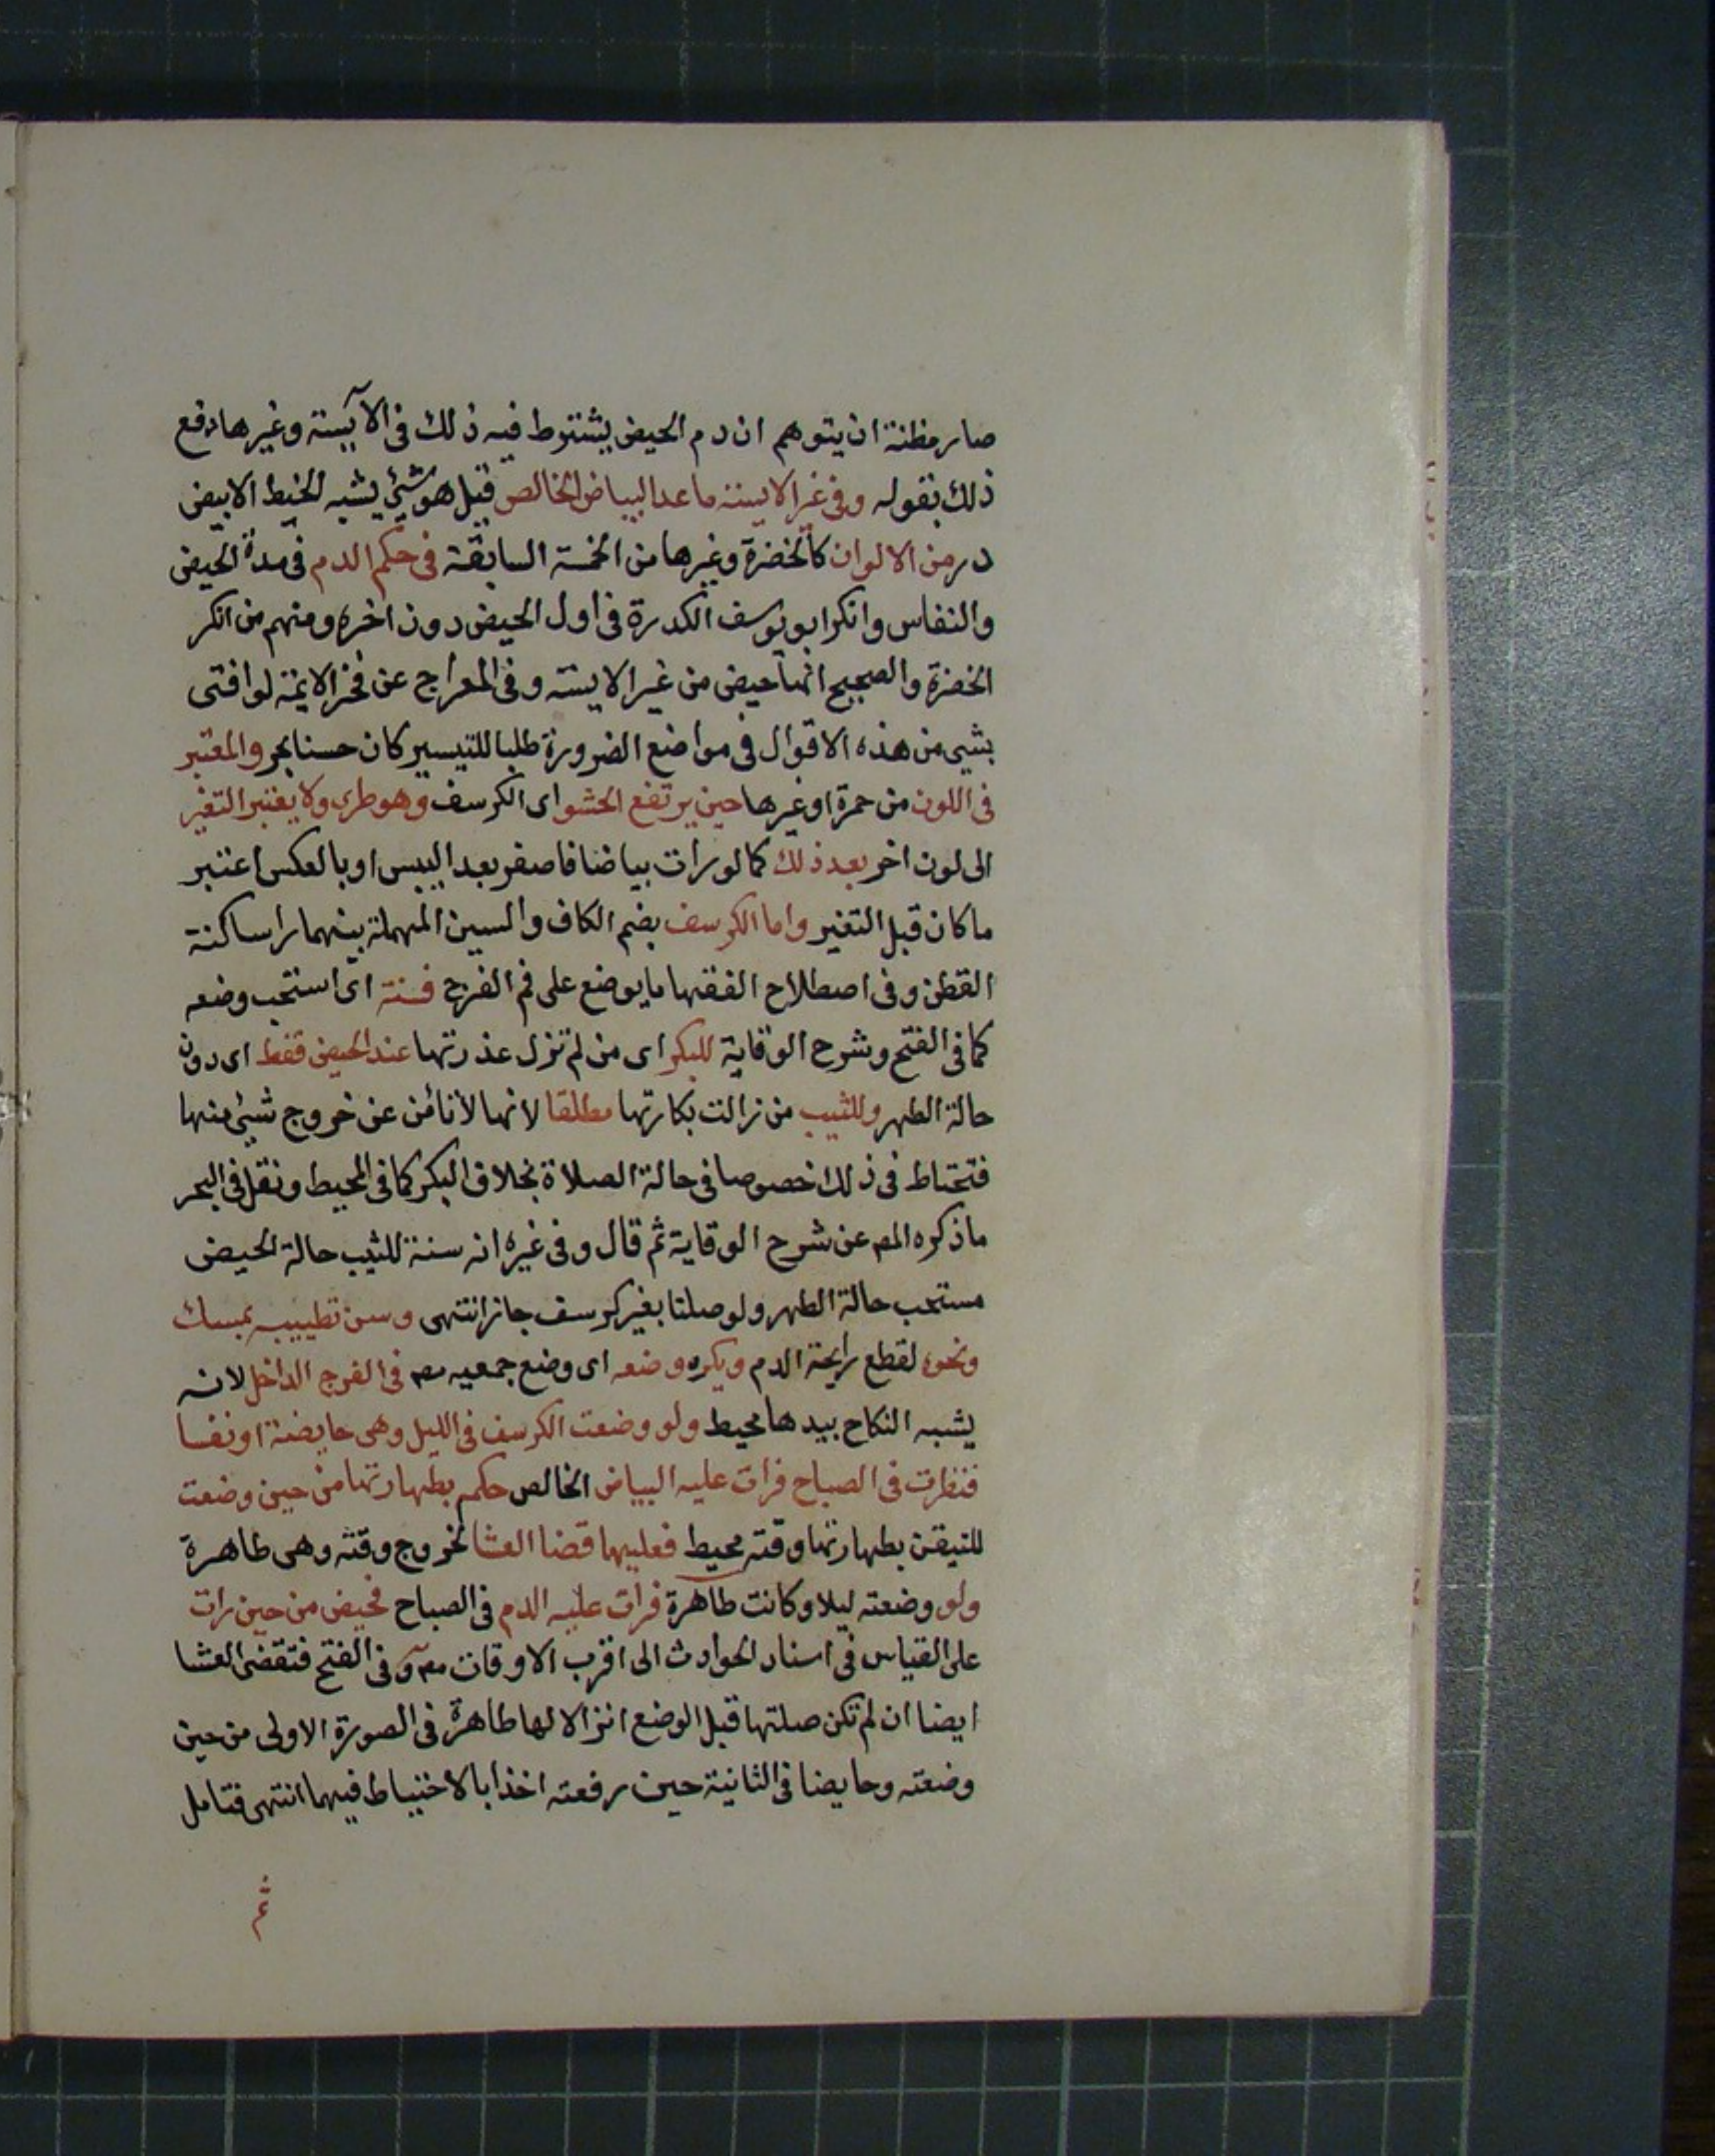 صار مظنة ان يتوهم ان دم الحيض يشترط فيه ذلك فى الآيسة وغيرها دفع
ذلك بقوله وفى غير الايسة ما عدا البياض الخالص قيل هو شئ يشبه الخيط الابيض
درر من الالوان كالخضرة وغيرها من الخمسة السابقة فى حكم الدم فى مدة الحيض
والنفاس وانكر ابو يوسف الكدرة فى اول الحيض دون اخره ومنهم من انكر
الخضرة والصحيح انها حيض من غير الايسة وفى المعراج عن فخر الايمة لو افتى
بشى من هذه الاقوال فى مواضع الضرورة طلبا للتيسير كان حسنا بحر والمعتبر
فى اللون من حمرة او غيرها حين يرتفع الحشو اى الكرسف وهو طرى ولا يعتبر التغير
الى لون اخر بعد ذلك كما لو رات بياضا فاصفر بعد اليبس او بالعكس اعتبر
ما كان قبل التغير واما الكرسف بضم الكاف والسين المهملة بينهما را ساكنة
القطن وفى اصطلاح الفقها ما يوضع على فم الفرج فسنة اى استحب وضعه
كما فى الفتح وشرح الوقاية للبكر اى من لم تزل عذرتها عند الحيض فقط اى دون
حالة الطهر وللثيب من زالت بكارتها مطلقا لانها لا تأمن عن خروج شئ منها
فتحتاط فى ذلك خصوصا فى حالة الصلاة بخلاف البكر كما فى المحيط ونقل فى البحر
ما ذكره المص عن شرح الوقاية ثم قال وفى غيره انه سنة للثيب حالة الحيض
مستحب حالة الطهر ولو صلتا بغير كرسف جاز انتهى وسن تطييبه بمسك
ونحوه لقطع رايحة الدم ويكره وضعه اى وضع جمعيه مص فى الفرج الداخل لانه
يشبه النكاح بيدها محيط ولو وضعت الكرسف فى الليل وهى حايضة او نفسا
فنظرت فى الصباح فرات عليه البياض الخالص حكم بطهارتها من حين وضعت
للتيقن بطهارتها وقته محيط فعليها قضا العشا لخروج وقته وهى طاهرة
ولو وضعته ليلا وكانت طاهرة فرات عليه الدم فى الصباح فحيض من حين رات
على القياس فى اسناد الحوادث الى اقرب الاوقات مص وفى الفتح فتقضى العشا
ايضا ان لم تكن صلتها قبل الوضع انزالا لها طاهرة فى الصورة الاولى من حين
وضعته وحايضا فى الثانية حين رفعته اخذا بالاحتياط فيهما انتهى فتامل
ثم